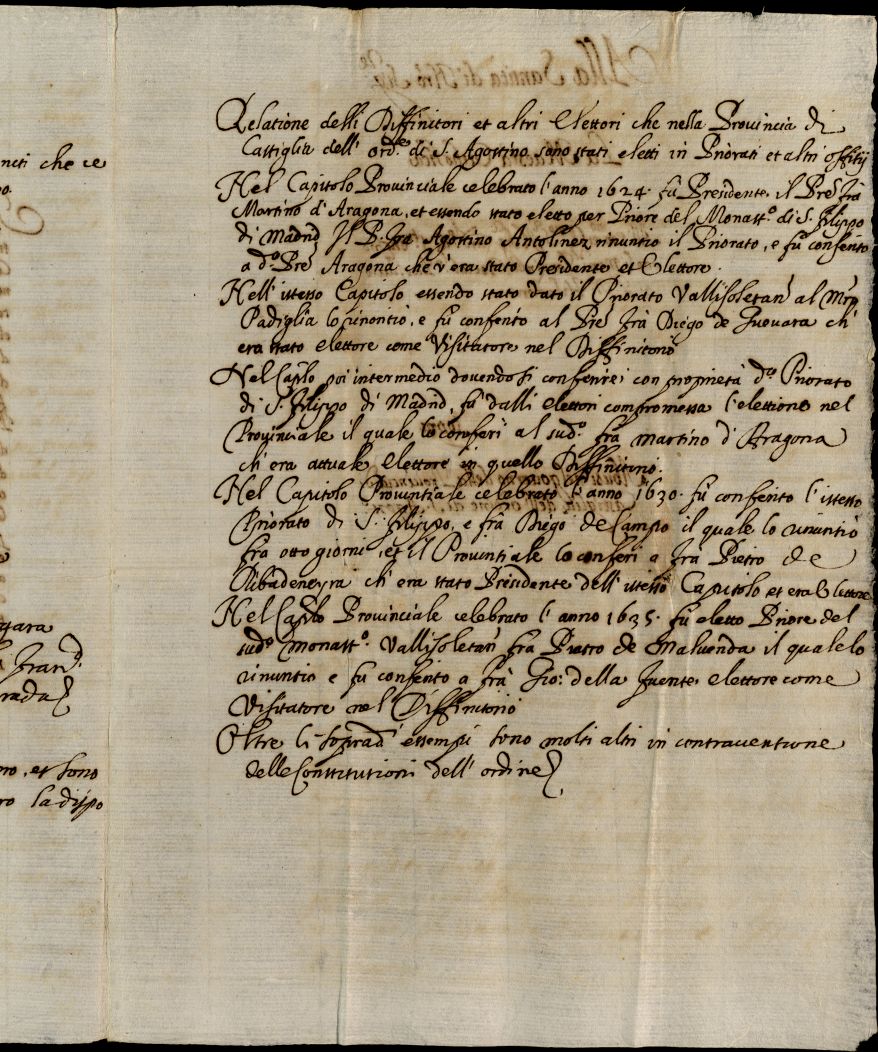 ncti che ce
Relatione delli Diffinitori et altri Elettori che nella Prouincia di
Castiglia dell' ord.e di S. Agostino sono stati eletti in Priorati et altri offitij
Nel Capitolo Prouinciale celebrato l'anno 1624. fù Presidente il Pre frà
Martino d'Aragona, et essendo stato eletto per Priore del Monast.o di S. filippo
di Madrid Il P. fra Agostino Antolinez rinuntio il Priorato, e fu conferito
a d.o Pre Aragona che v'era stato Presidente et Elettore.
Nell' istesso Capitolo essendo stato dato il Priorato Vallisoletan' al Mro
Padiglia lo rinontiò, e fu conferito al Pre frà Diego de Gueuara ch'
era stato elettore come Visittatore nel Diffinitorio
Nel Caplo poi intermedio douendosi conferire con proprietà d.o Priorato
di S. filippo di Madrid, fu dalli elettori compromessa l'elettione nel
Prouinciale il quale lo conferì al sud.o frà Martino d'Aragona
ch' era attuale elettore in quello Diffinitorio.
Nel Capitolo Prouintiale celebrato l'anno 1630. fù conferito l'istesso
Priorato di S. filippo, e frà Diego de Campo il quale lo rinuntiò
fra otto giorni, et il Prouintiale lo conferì a frà Pietro de
Ribadeneyra ch' era stato Presidente dell' istesso Capitolo et era Elettore
Nel Caplo Prouinciale celebrato l'anno 1635. fù eletto Priore del
sud.o Monast.o Vallisoletan' fra Pietro de Maluenda il quale lo
rinuntio e fu conferito a frà Gio: della fuente elettore come
Visitatore nel Diffinitorio
Oltre li soprad.i essempij sono molti altri in contrauentione
delle Constitutioni dell' ordine
gara
fran.
rada
no, et sono
ro la dispo